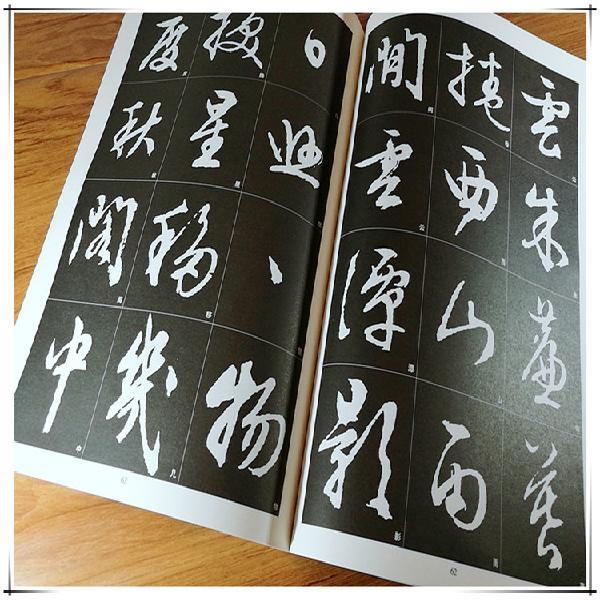 雲朱簾暮
捲西山雨
閒雲潭影
日悠、物
換星移幾
度秋閣中